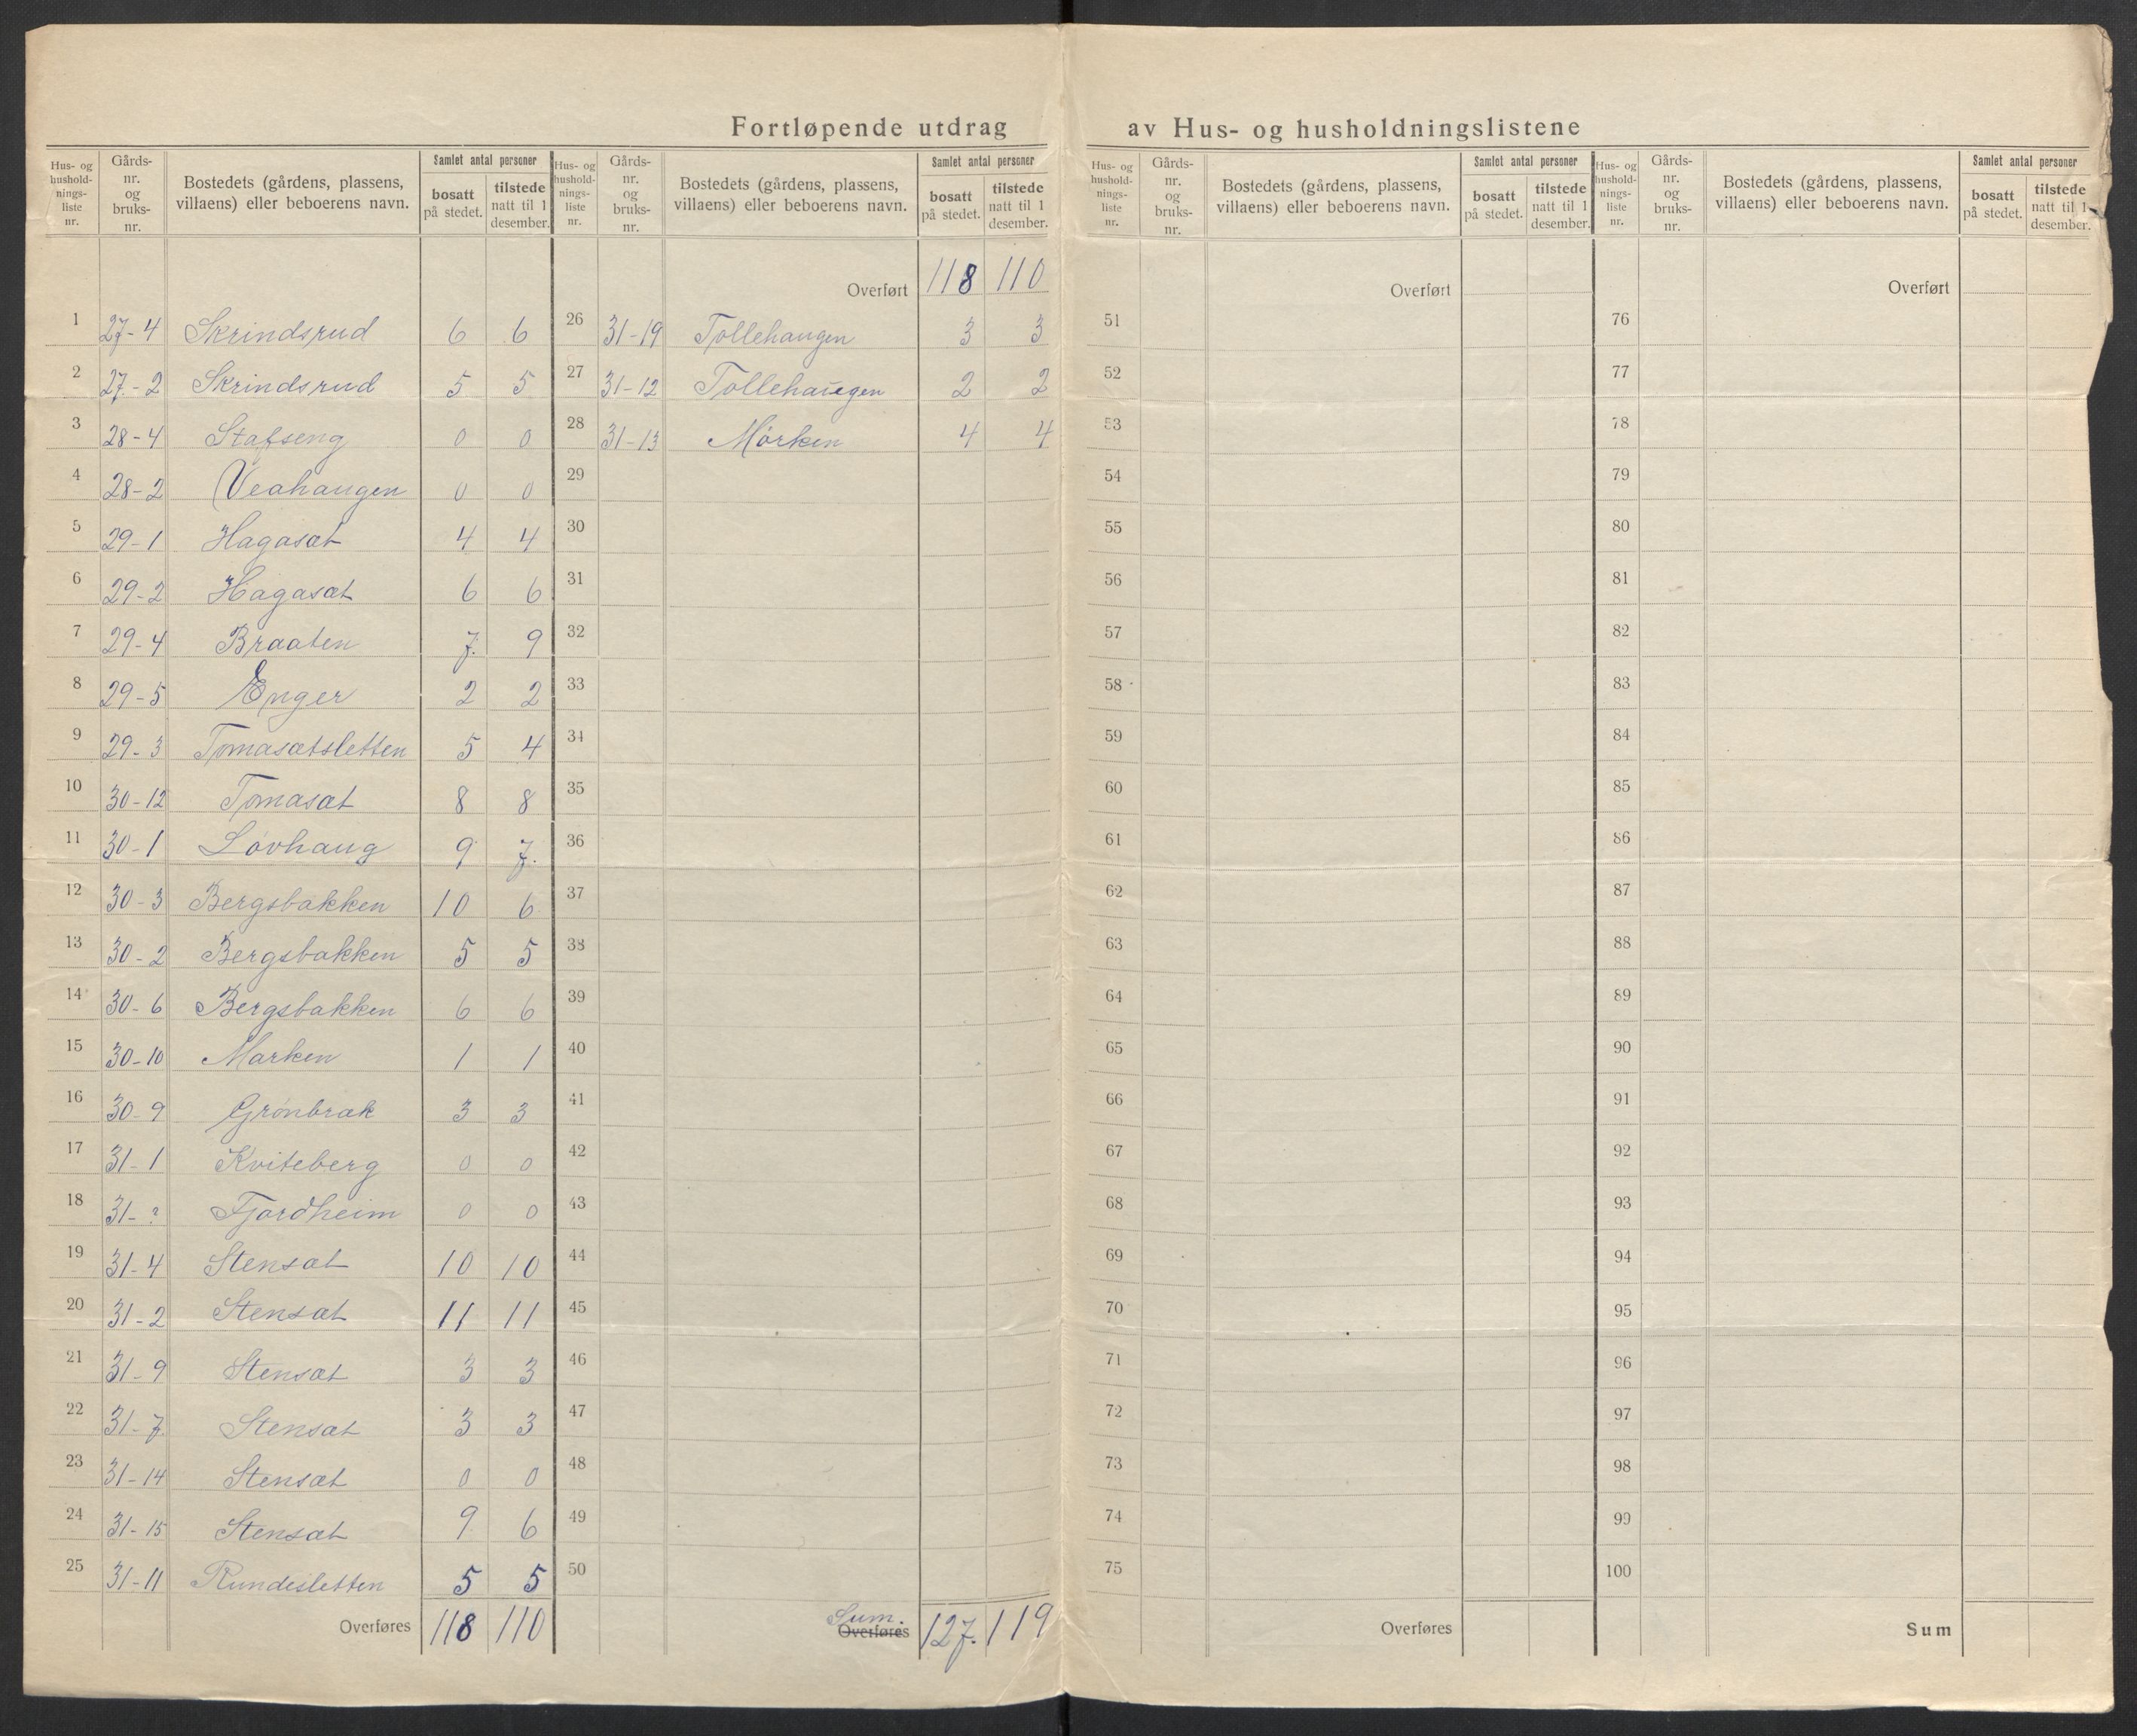 Fortløpende utdrag av Hus- og husholdningslistene
Hus- og hushold- nings- liste nr. Gårds- nr. og bruks- nr. Bostedets (gårdens, plassens, villaens) eller beboerens navn. Samlet antal personer bosatt på stedet. tilstede natt til 1 desember.
1 27-4 Skrindsrud 6 6
2 27-2 Skrindsrud 5 5
3 28-4 Stafseng 0 0
4 28-2 Veahaugen 0 0
5 29-1 Hagasæt 4 4
6 29-2 Hagasæt 6 6
7 29-4 Braaten 7. 9
8 29-5 Enger 2 2
9 29-3 Tomasætsletten 5 4
10 30-12 Tomasæt 8 8
11 30-1 Løvhaug 9 7.
12 30-3 Bergsbakken 10 6
13 30-2 Bergsbakken 5 5
14 30-6 Bergsbakken 6 6
15 30-10 Marken 1 1
16 30-9 Grønbræk 3 3
17 31-1 Kviteberg 0 0
18 31-? Fjordheim 0 0
19 31-4 Stensæt 10 10
20 31-2 Stensæt 11 11
21 31-9 Stensæt 3 3
22 31-7 Stensæt 3 3
23 31-14 Stensæt 0 0
24 31-15 Stensæt 9 6
25 31-11 Rundesletten 5 5
Overføres 118 110
Hus- og hushold- nings- liste nr. Gårds- nr. og bruks- nr. Bostedets (gårdens, plassens, villaens) eller beboerens navn. Samlet antal personer bosatt på stedet. tilstede natt til 1 desember.
Overført 118 110
26 31-19 Tollehaugen 3 3
27 31-12 Tollehaugen 2 2
28 31-13 Mørken 4 4
29
30
31
32
33
34
35
36
37
38
39
40
41
42
43
44
45
46
47
48
49
50
Sum.
Overføres 127. 119
Hus- og hushold- nings- liste nr. Gårds- nr. og bruks- nr. Bostedets (gårdens, plassens, villaens) eller beboerens navn. Samlet antal personer bosatt på stedet. tilstede natt til 1 desember.
Overført
51
52
53
54
55
56
57
58
59
60
61
62
63
64
65
66
67
68
69
70
71
72
73
74
75
Overføres
Hus- og hushold- nings- liste nr. Gårds- nr. og bruks- nr. Bostedets (gårdens, plassens, villaens) eller beboerens navn. Samlet antal personer bosatt på stedet. tilstede natt til 1 desember.
Overført
76
77
78
79
80
81
82
83
84
85
86
87
88
89
90
91
92
93
94
95
96
97
98
99
100
Sum